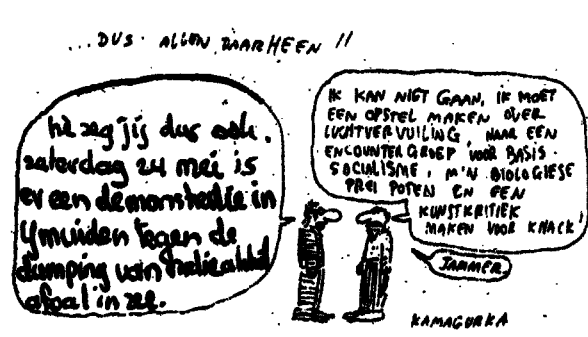 ...DUS. ALLEN DAARHEEN !!
hè zeg jij dus ook.
zaterdag 24 mei is
er een demonstratie in
Ymuiden tegen de
dumping van
afval in zee.
IK KAN NIET GAAN, IK MOET
EEN OPSTEL MAKEN OVER
LUCHTVERVUILING, NAAR EEN
ENCOUNTER GROEP VOOR BASIS-
SOCIALISME, M'N BIOLOGIESE
PREI POTEN EN EEN
KUNSTKRITIEK
MAKEN VOOR KNACK!
JAMMER
KAMAGURKA